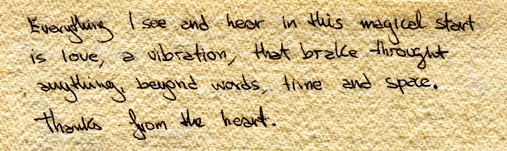 Everything I see and hear in this magical start
is love, a vibration, that brake throught
anything, beyond words, time and space.
Thanks from the heart.